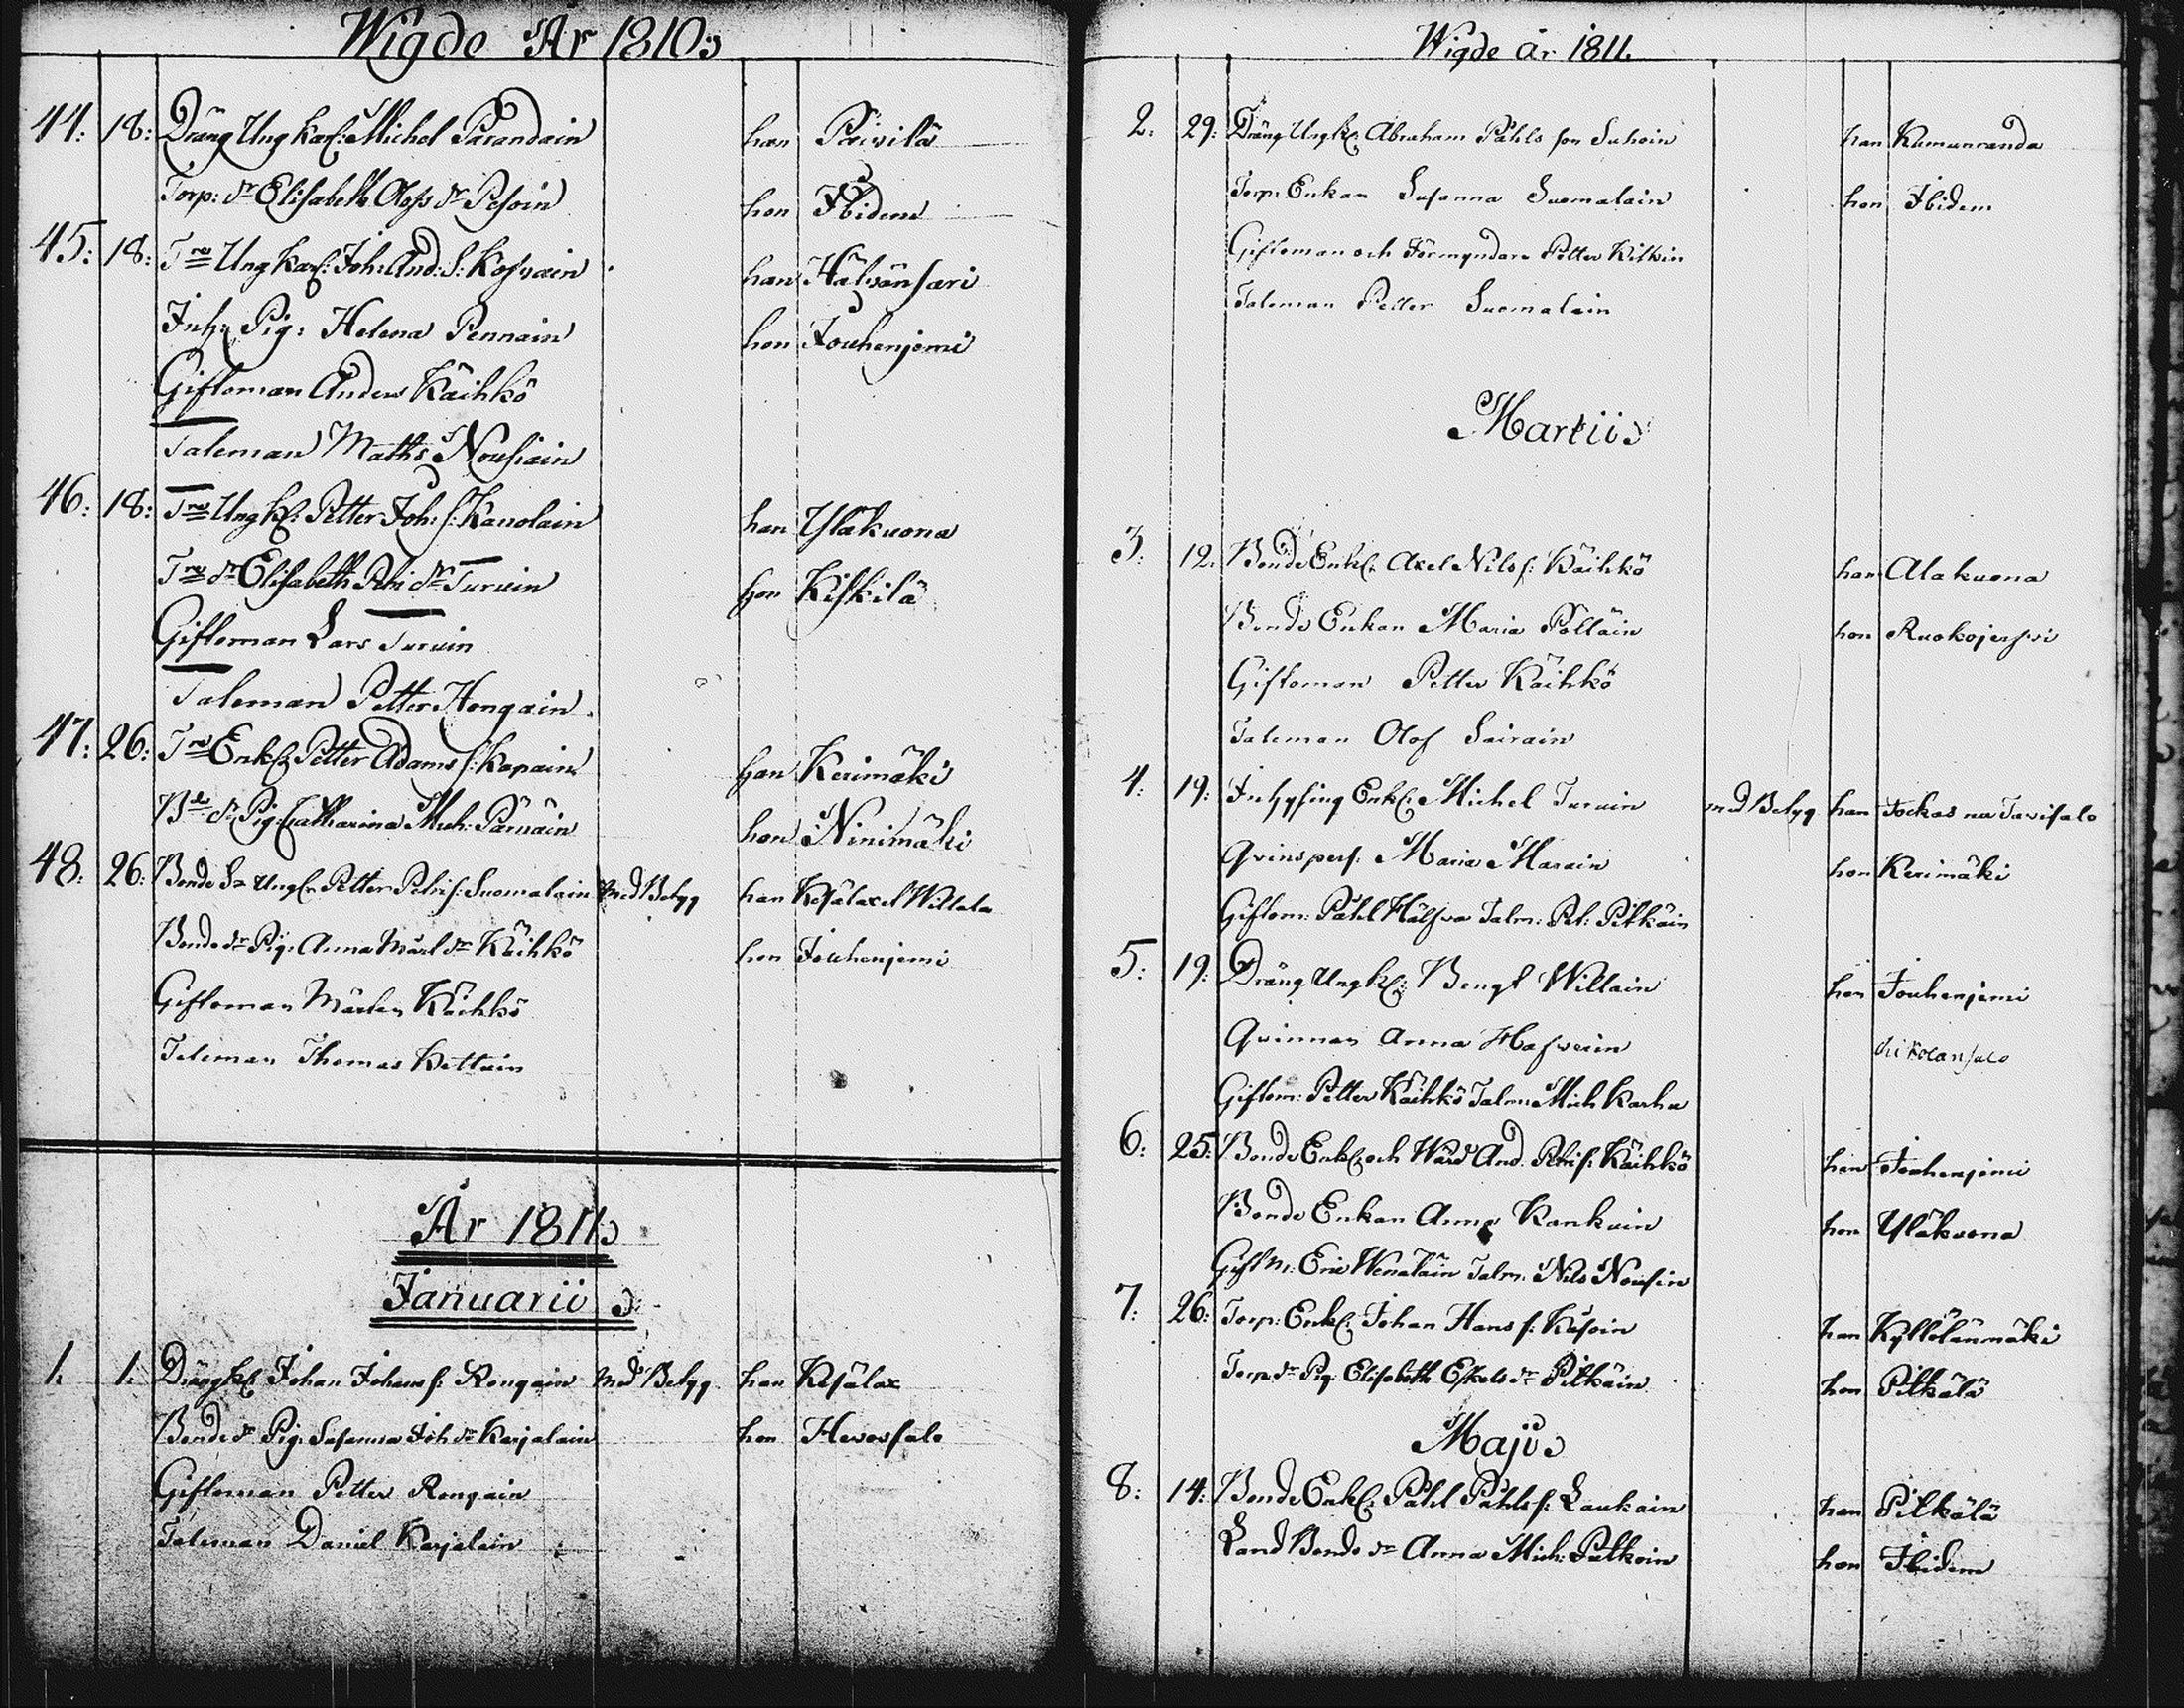 Wigde År 1810
44: 18: Dräng Ung Karl: Michel Parandain han Päivilä
Torp: dr Elisabeth Olofs dr Pesoin hon Ibidem
45: 18: Ung Karl: Joh: And: S: Kosvain han Hälvänsari
Inh: Pig: Helena Pennain hon Jouhenjemi
Gifloman Anders Käihkö
Taleman Maths Nousiain
46: 18: Ung K: Petter Joh: s: Kauolain han Yläkuona
dr Elisabeth Petri dr Turuin hon Kiskilä
Gifloman Lars Turuin
Taleman Petter Hongain
47: 26: Enkl: Petter Adams s: Kapain han Kerimäki
dr Pig: Catharina Mich: Parnäin hon Ninimäki
48: 26: Bonde Petter Petri s: Suomalain med Betyg han Kesälax Willala
Bonde dr Pig: Anna Mårt dr Käihkö hon Jouhenjemi
Gifloman Mårten Käihkö
Taleman Thomas Kettuin
År 1811
Januarii
1. 1. Dräng Johan Johans s: Rongain Med Betyg han Kesälax
Bonde dr Pig. Susanna Joh dr Karjalain hon Hevossalo
Gifloman Petter Rongain
Taleman Daniel Karjalain
Wigde år 1811.
2. 29: Dräng Ungk: Abraham Påhls son Suhoin han Kumunranda
Torp: Enkan Susanna Suomalain hon Ibidem
Gifloman och Förmyndare Petter Kilkin
Taleman Petter Suomalain
Martii
3. 12. Bonde Enkl: Axel Nils s: Käihkö han Alakuona
Bonde Enkan Maria Pölläin hon Ruokojerfvi
Gifloman Petter Käihkö
Taleman Olof Sairain
4. 19: Inhysing Enkl: Michel Turuin med Betyg han
Qvinspers: Maria Harain hon Kerimäki
Giflom: Påhl Hälfva Talm: Pet: Pitkäin
5: 19: Dräng Ungk: Bengt Willain han Jouhenjemi
Qvinnan Anna Hafverin
Giflom: Petter Käihkö Talm: Mich Karhu
6: 25: Bonde Enkl: och Wärd And. Petri s: Käihkö han Jouhenjemi
Bonde Enkan Anna Kankuin hon Yläkuona
Giflm: Eric Wenäläin Talm: Nils Nousin
7: 26: Torp: Enkl: Johan Hans s: Käsoin han Kyllölänmäki
Torp dr Pig Elisabeth Eskels dr Pitkäin hon Pitkälä
Majus
8: 14: Bonde Enkl: Påhl Påhls s: Laukain han Pitkälä
Land Bonde dr Anna Mich: Pulkoin hon Ibidem